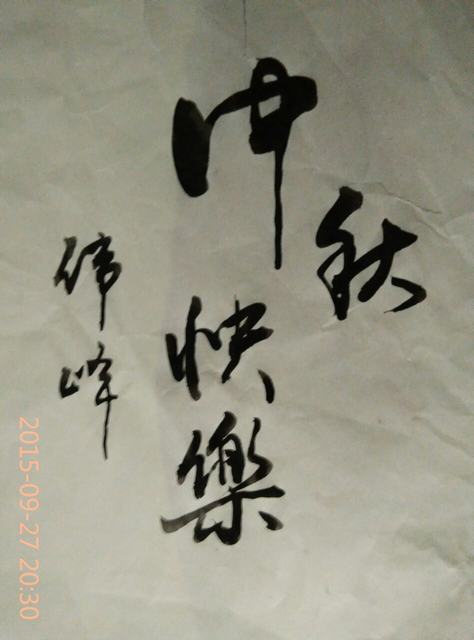 仲秋
快樂
偉峰
2015-09-27 20:30